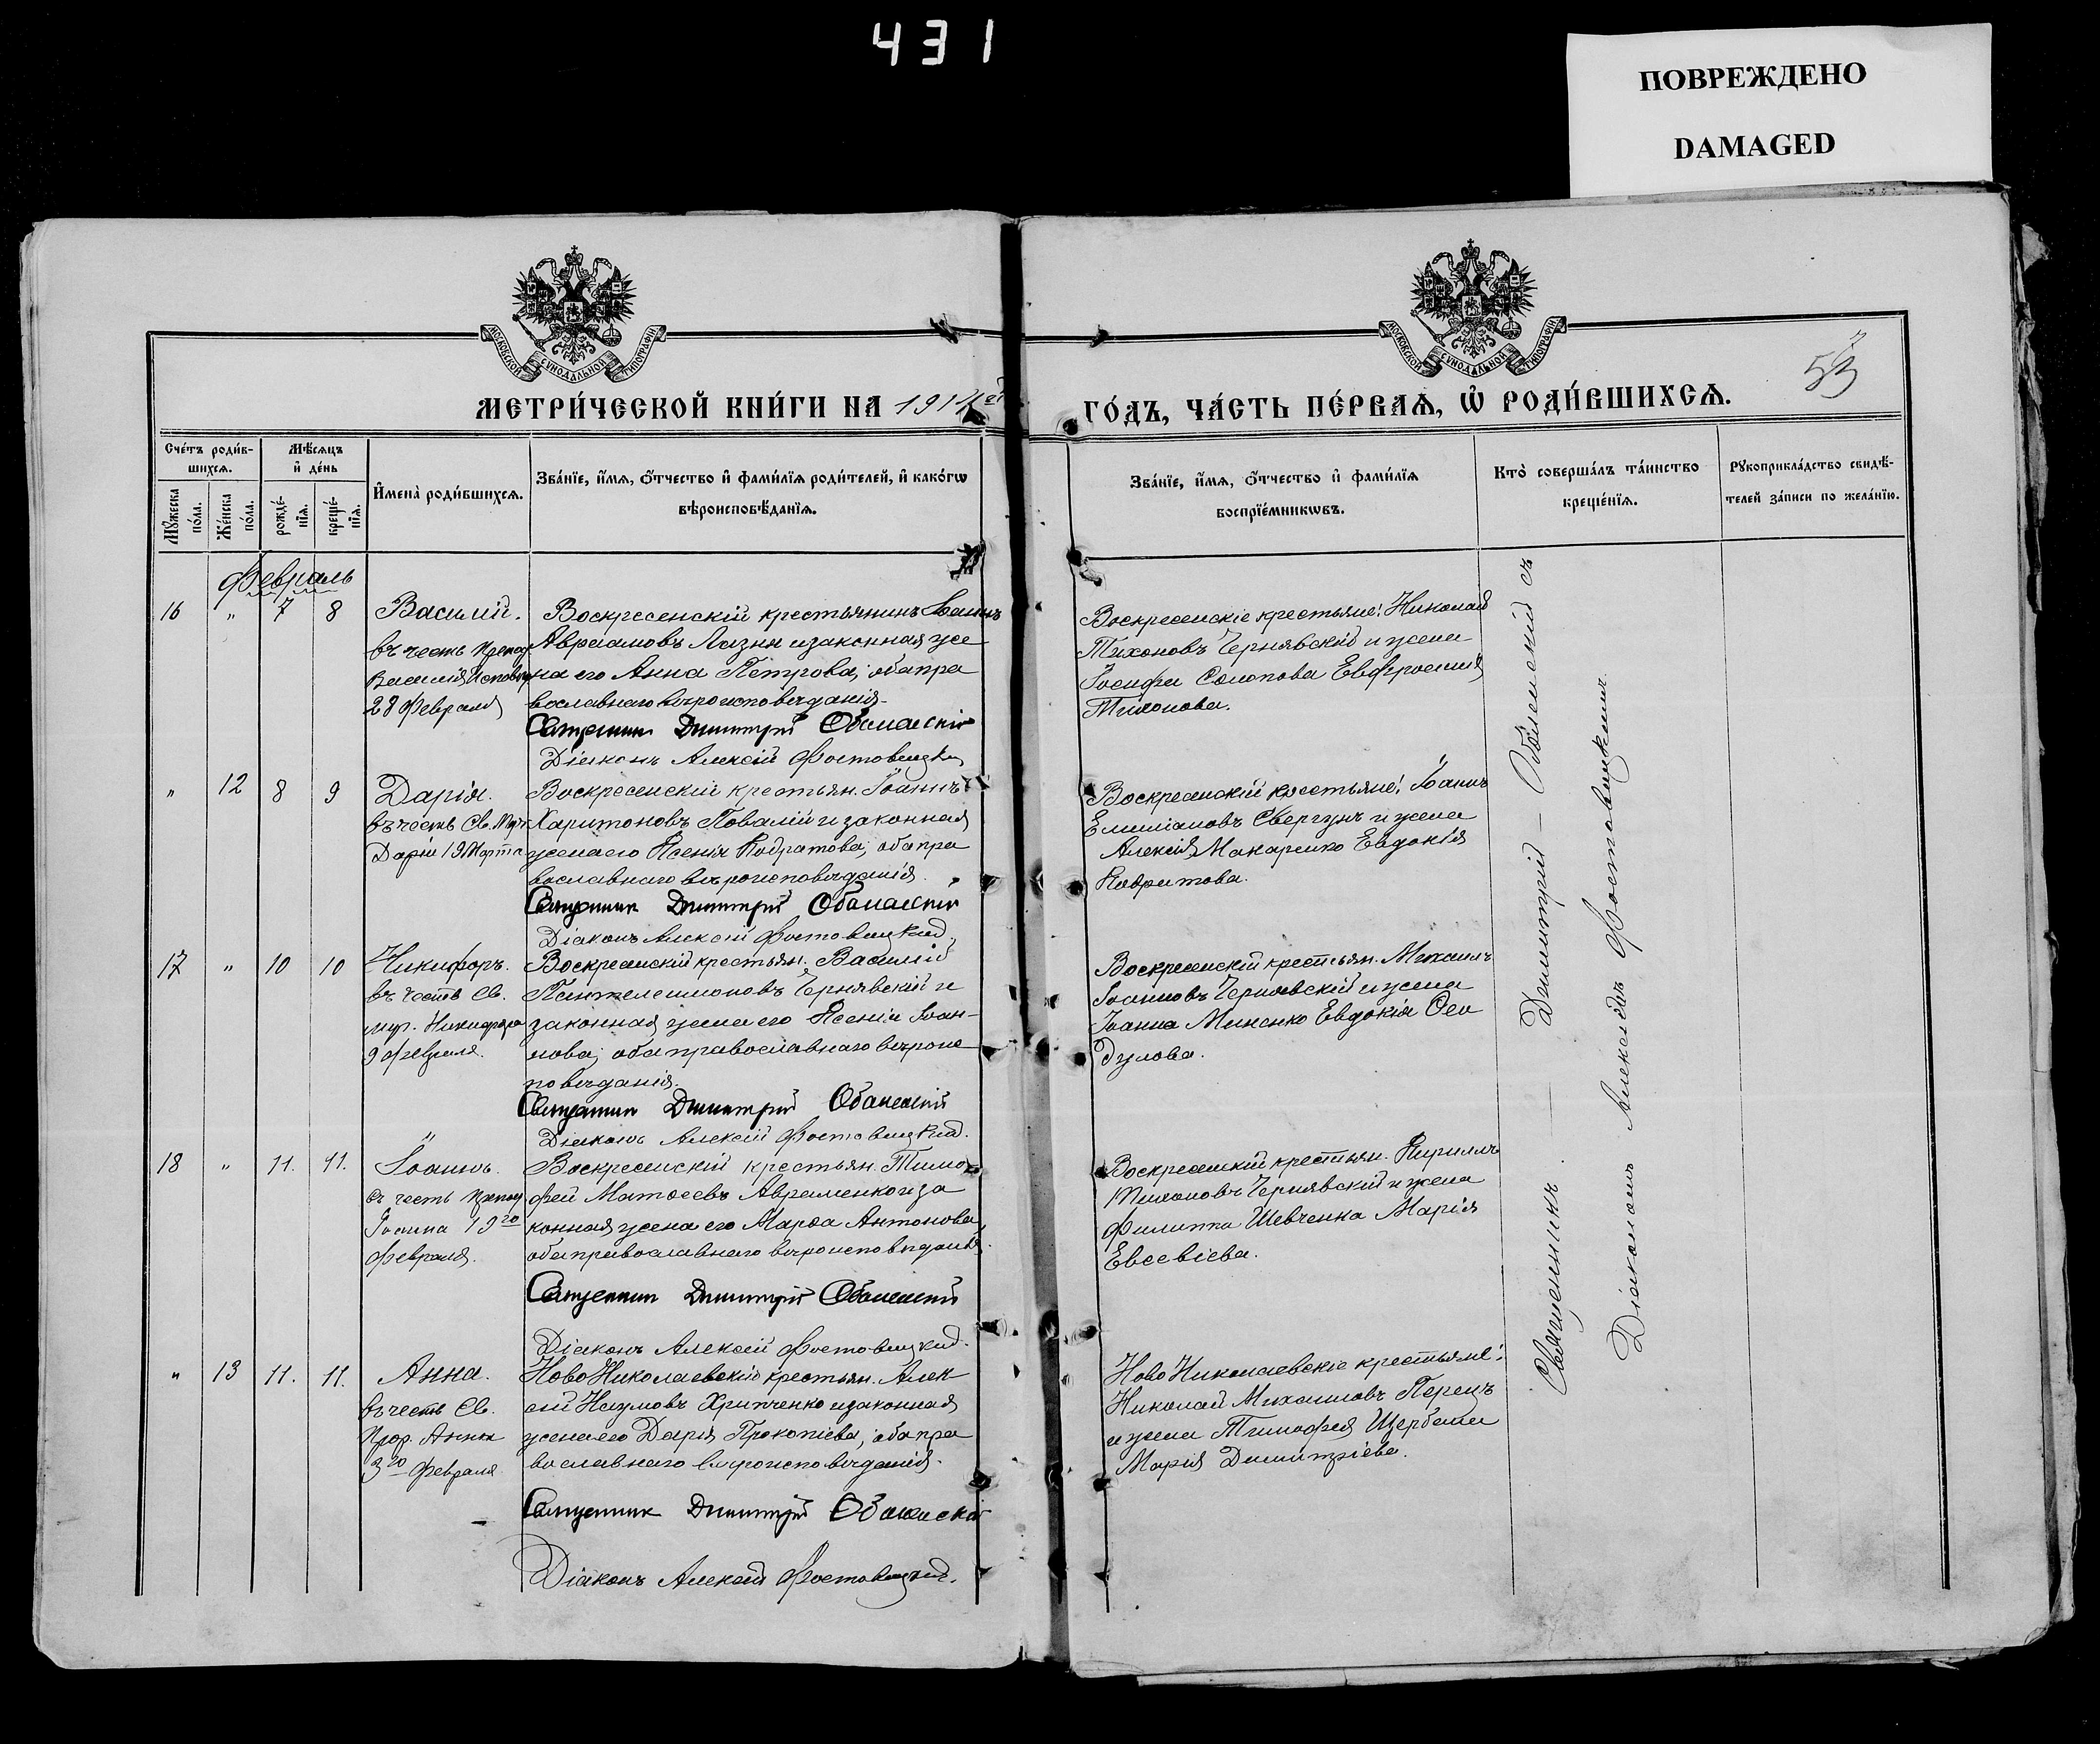 431
ПОВРЕЖДЕНО
DAMAGED
МОСКОВСКОЙ СѴНОДАЛЬНОЙ ТИПОГРАФІИ
МОСКОВСКОЙ СѴНОДАЛЬНОЙ ТИПОГРАФІИ
53
МЕТРИ́ЧЕСКОЙ КНИ́ГИ НА 1914ый
ГО́ДЪ, ЧА́СТЬ ПЕ́РВАѦ, Ѡ҆ РОДИ́ВШИХСѦ.
Сче́тъ роди́в-
шихсѧ.
Мѣ́сяцъ
и҆ де́нь
Мꙋ́жеска
по́ла.
Же́нска
по́ла.
рожде́-
нїѧ.
креще́-
нїѧ.
И҆мена̀ роди́вшихсѧ.
Зва́нїе, и҆́мѧ, ѻ҆́тчество и҆ фамі́лїѧ роди́телей, и҆ како́гѡ
вѣроисповѣ́данїѧ.
Зва́нїе, и҆́мѧ, ѻ҆́тчество и҆ фамі́лїѧ
воспрїе́мникѡвъ.
Кто̀ соверша́лъ та́инство
креще́нїѧ.
Рꙋкоприкла́дство свидѣ́-
телей за́писи по жела́нїю.
Февраль
16 " 7 8 Василій.
въ честь препод.
Василія Исповѣд
28 Февраля
Воскресенскій крестьянинъ Іоаннъ
Авраамовъ Лазни и законная же
на его Анна Петрова; оба пра
вославнаго вѣроисповѣданія.
Священник Димитрій Обламскій
Діаконъ Алексій Фостовицкій
Воскресенскіе крестьяне: Николай
Тихоновъ Чернявскій и жена
Іосифа Солопова Евфросинія
Тихонова.
" 12 8 9 Дарія.
въ честь Св. Муч
Даріи 19 Марта
Воскресенскій крестьян. Іоаннъ
Харитоновъ Повалій и законная
жена его Ксенія Кодратова; оба пра
вославнаго вѣроисповѣданія.
Священник Димитрій
Діаконъ Алексій Фостовицкій
Воскресенскій крестьяне: Іоаннъ
Емиліановъ Свергунъ и жена
Алексія Макаренко Евдокія
Кодратова.
17 " 10 10 Никифоръ.
въ честь Св.
муч. Никифора
9 февраля.
Воскресенскій крестьян. Василій
Пантелеимоновъ Чернявскій и
законная жена его Ксенія Іоан-
нова; оба православнаго вѣроис
повѣданія.
Священник Димитрій
Діаконъ Алексій Фостовицкій.
Воскресенскій крестьян. Михаилъ
Іоанновъ Чернявскій и жена
Іоанна Миненко Евдокія Ѳео
дулова.
18 " 11. 11. Іоаннъ.
въ честь препод
Іоанна 19го
февраля.
Воскресенскій крестьян. Тимо
фей Матѳеевъ Авраменко и за
конная жена его Марѳа Антонова,
оба православнаго вѣроисповѣданія.
Священник Димитрій
Діаконъ Алексій Фостовицкій.
Воскресенскій крестьян. Кириллъ
Тихоновъ Чернявскій и жена
Филиппа Шевченка Марія
Евсевіева.
" 13 11. 11. Анна.
въ честь Св.
Прор. Анны
3го Февраля
Ново Николаевскій крестьян. Алек
сій Наумовъ Хрипченко и законная
жена его Дарія Прокопіева; оба пра
вославнаго вѣроисповѣданія.
Священник Димитрій
Діаконъ Алексій Фостовицкій.
Ново Николаевскіе крестьяне:
Николай Михаиловъ Перецъ
и жена Тимофея Щербаки
Марія Димитріева.
Священникъ Димитрій съ
Діакономъ Фостовицкимъ